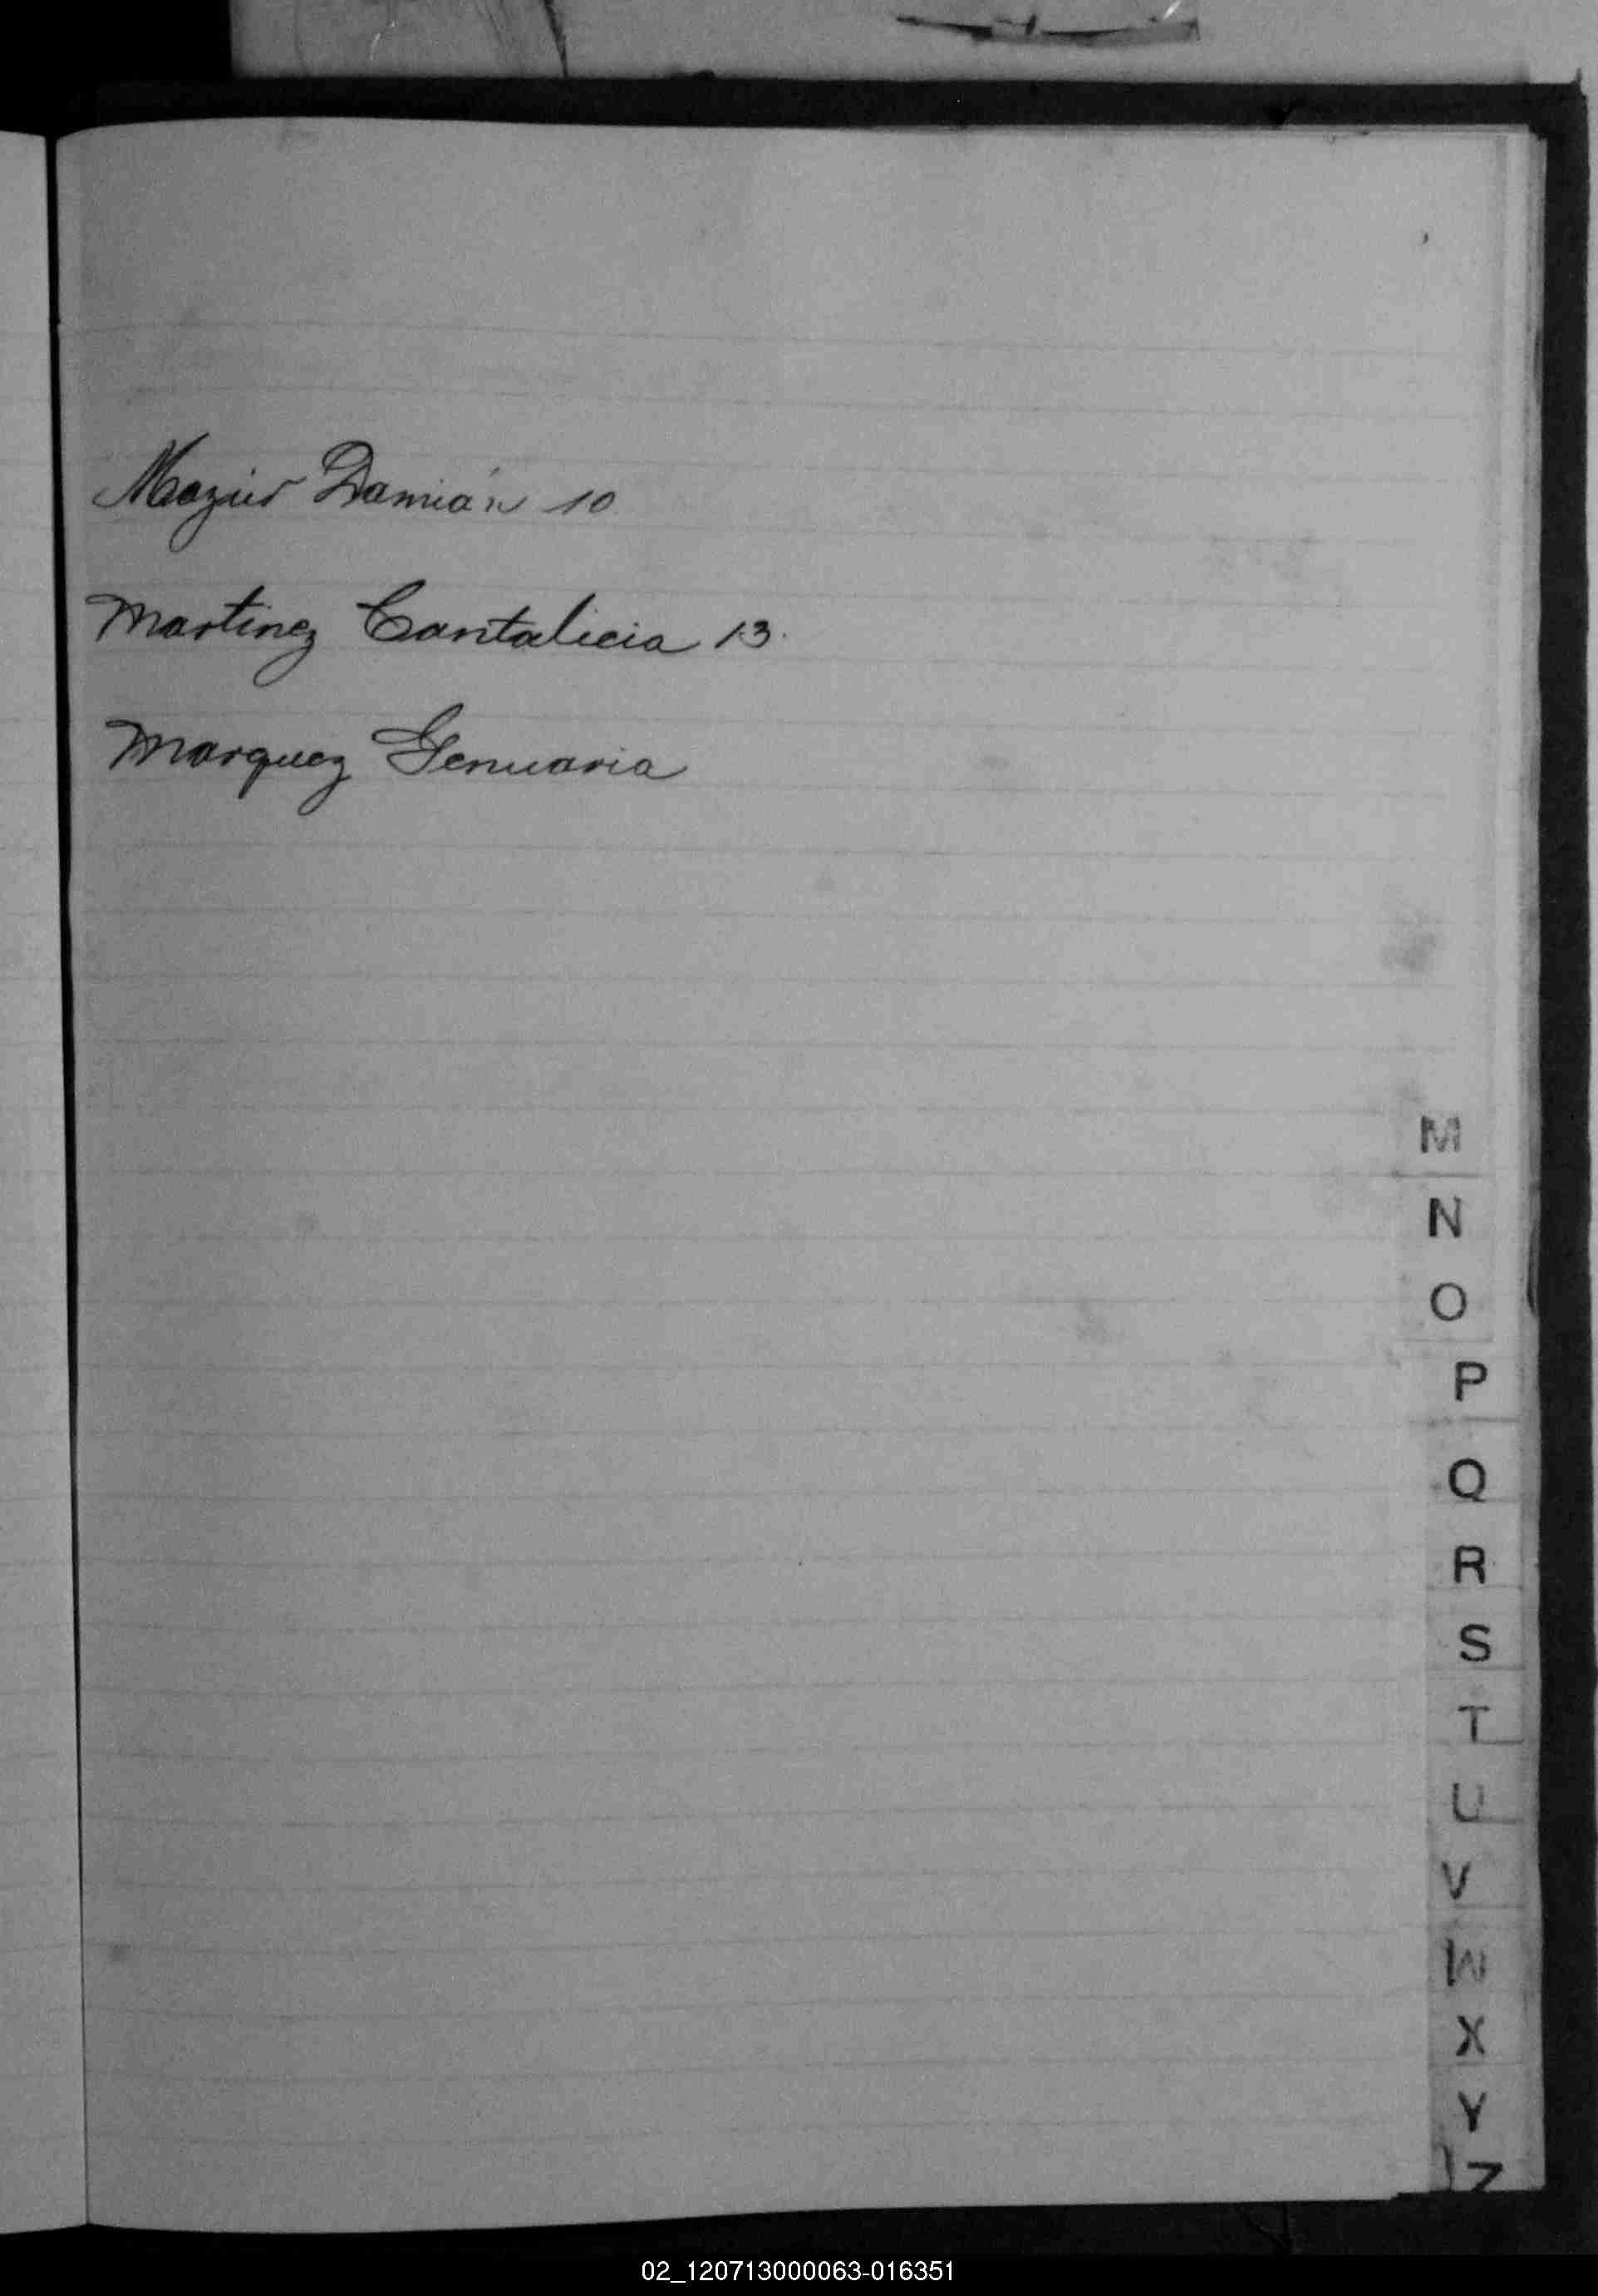 Mazur Damián 10
Martinez Cantalicia 13.
Marquez Genuaria
M
N
O
P
Q
R
S
T
U
V
W
X
Y
Z
02_120713000063-016351